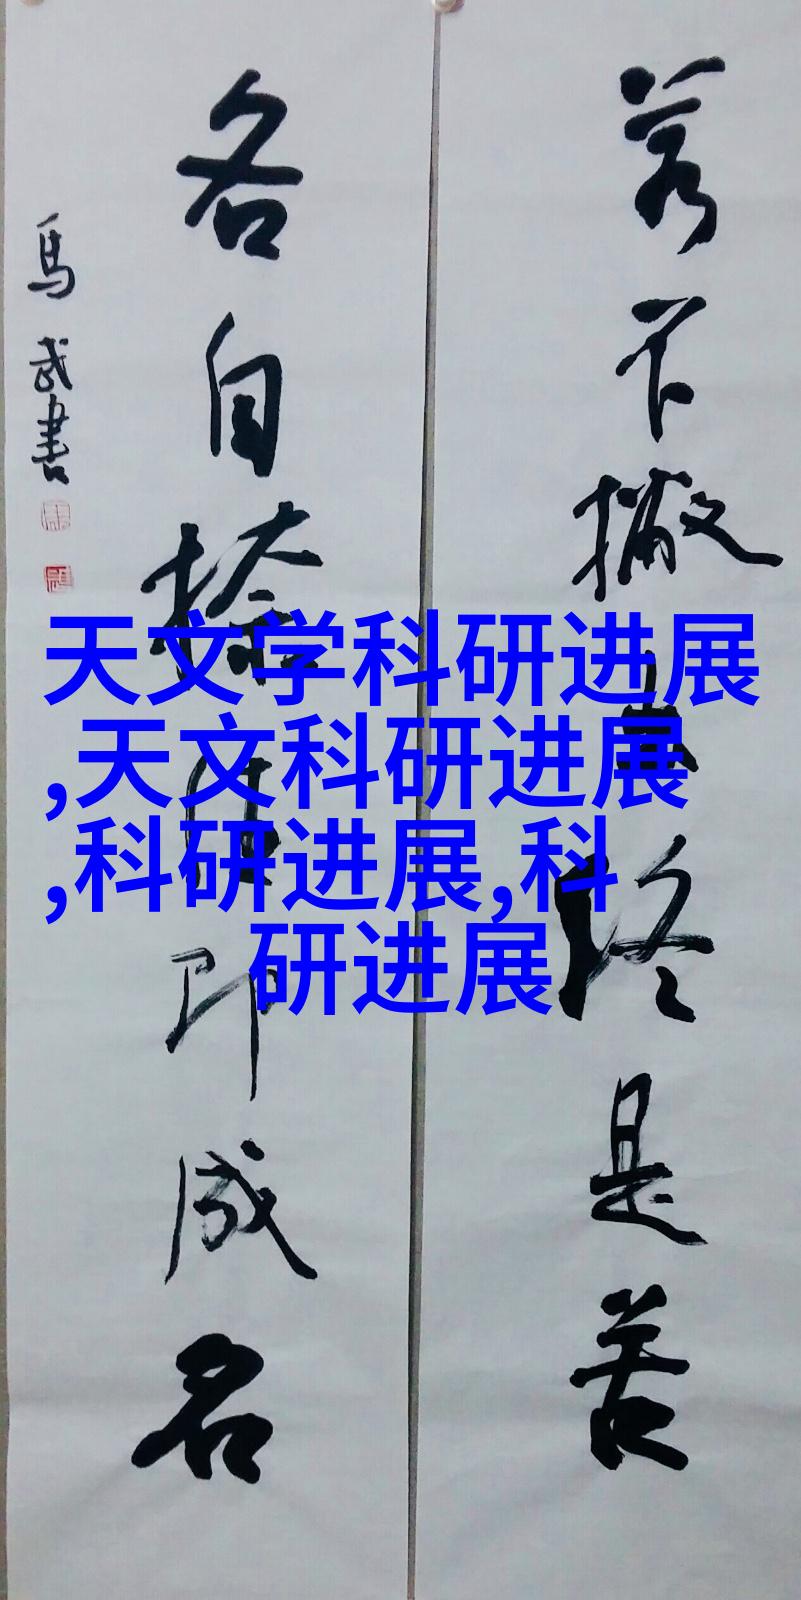 若不撇终是苦
各自捺住即成名
馬武書
天文学科研进展
,天文科研进展
,科研进展,科
研进展